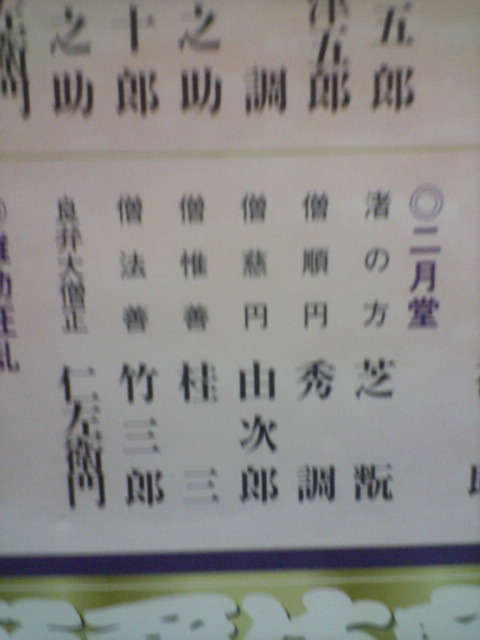 五郎
津五郎
調
之助
十郎
之助
左衛門
◎二月堂
渚の方 芝翫
僧順円 秀調
僧慈円 由次郎
僧惟善 桂三
僧法善 竹三郎
良弁大僧正 仁左衛門